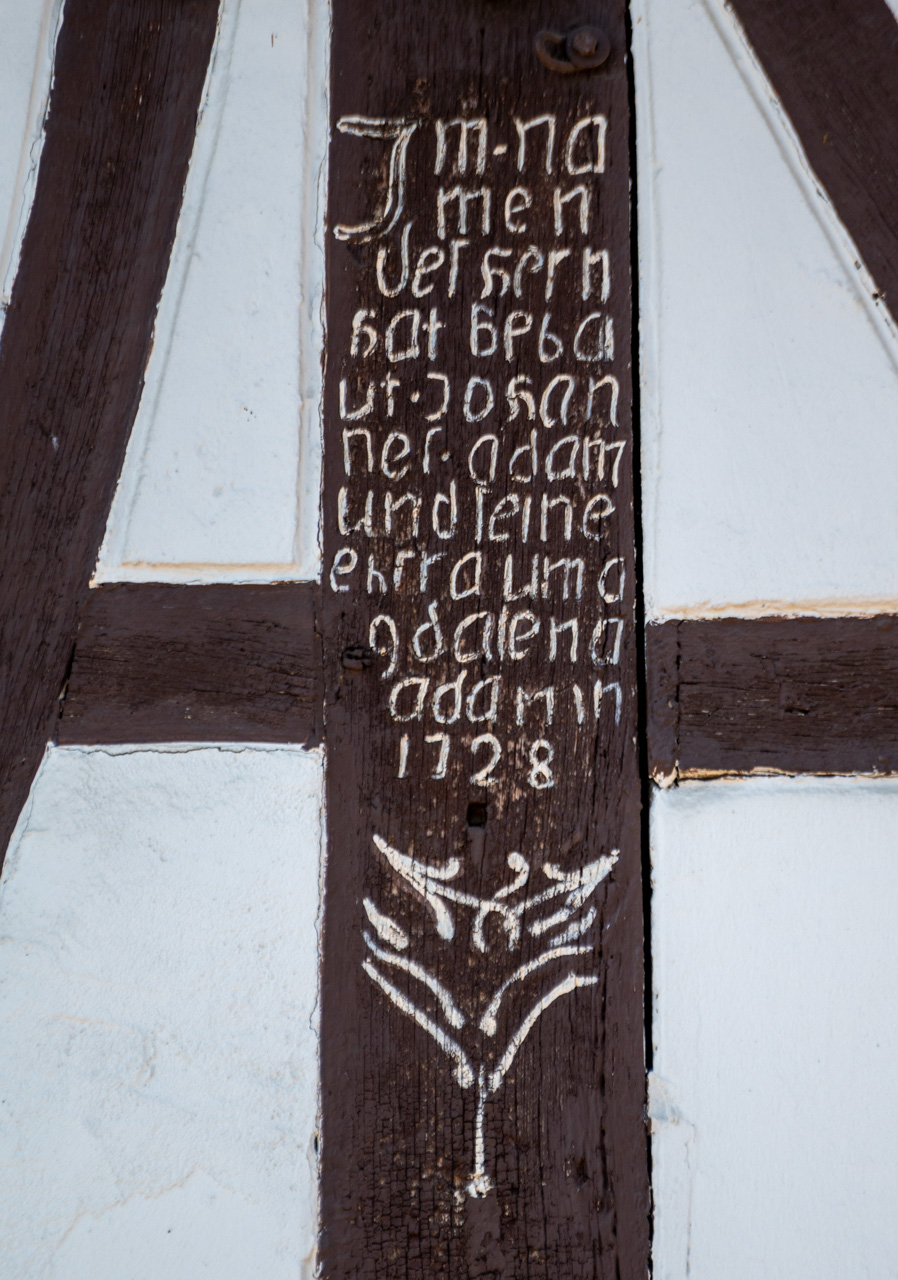 Jm·na
men
Der hern
hat geba
ut·Johan
nes· adam
und seine
ehfrau ma
gdalena
adamin
1728